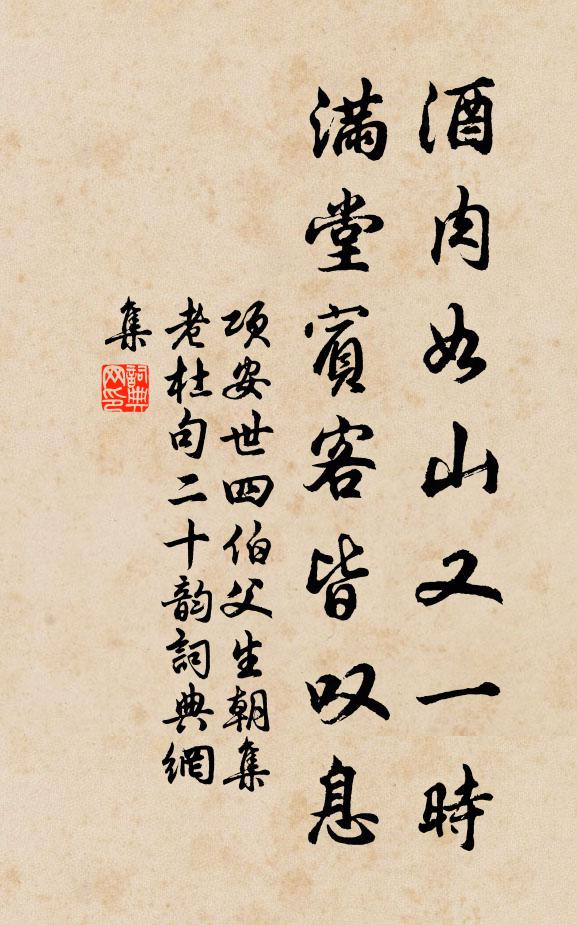 酒肉如山又一時
滿堂賓客皆叹息
項安世四伯父生朝集
老杜句二十韵詞典網
集
詞典
网印